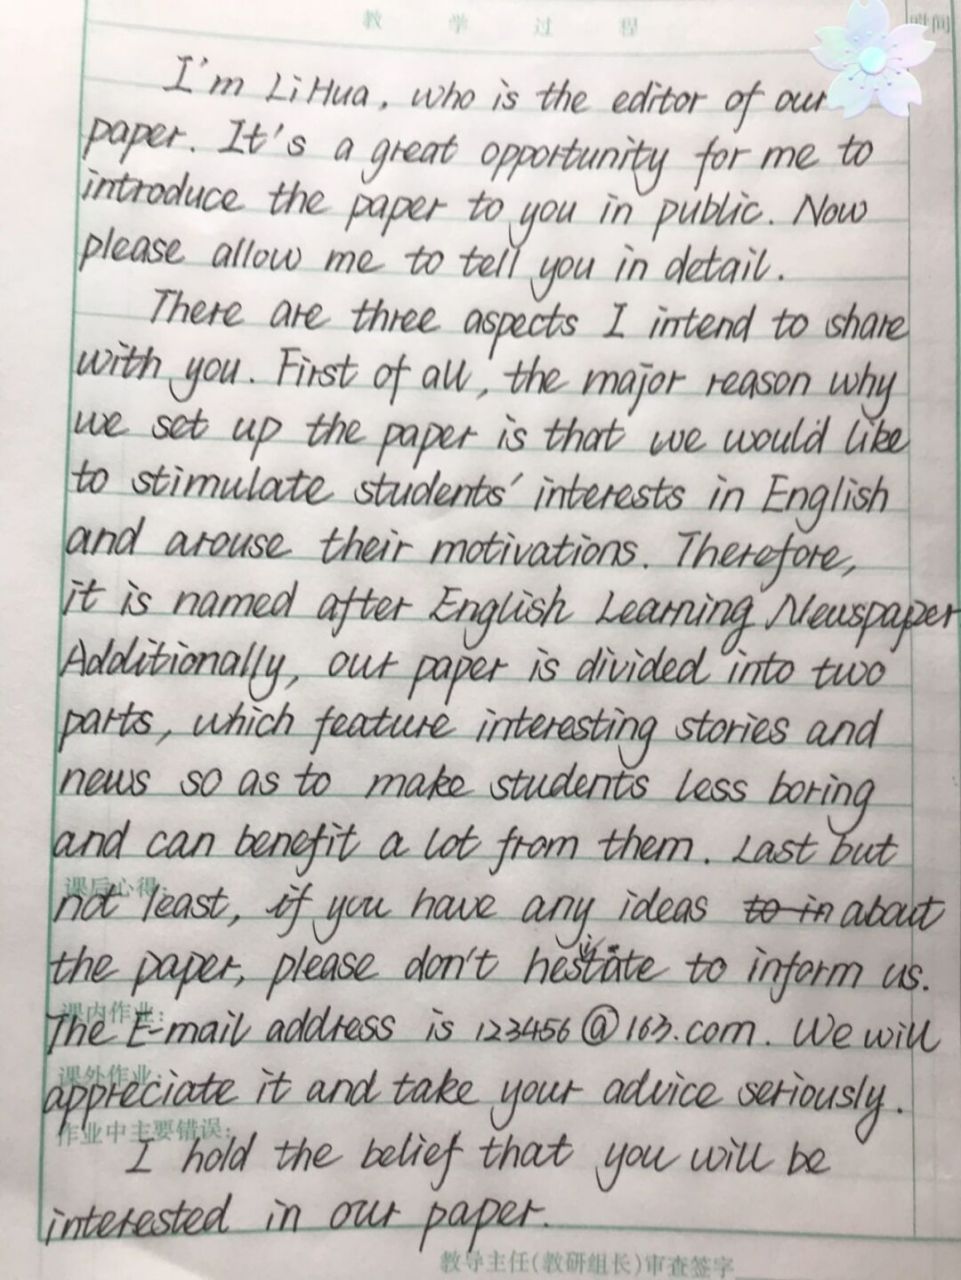 教 学 过 程
时间
I'm Li Hua, who is the editor of our
paper. It's a great opportunity for me to
introduce the paper to you in public. Now
please allow me to tell you in detail.
There are three aspects I intend to share
with you. First of all, the major reason why
we set up the paper is that we would like
to stimulate students' interests in English
and arouse their motivations. Therefore,
it is named after English Learning Newspaper
Additionally, our paper is divided into two
parts, which feature interesting stories and
news so as to make students less boring
and can benefit a lot from them. Last but
课后心得:
not least, if you have any ideas to in about
the paper, please don't hesitate to inform us.
课内作业:
The E-mail address is 123456@163.com. We will
课外作业:
appreciate it and take your advice seriously.
作业中主要错误:
I hold the belief that you will be
interested in our paper.
教导主任(教研组长)审查签字